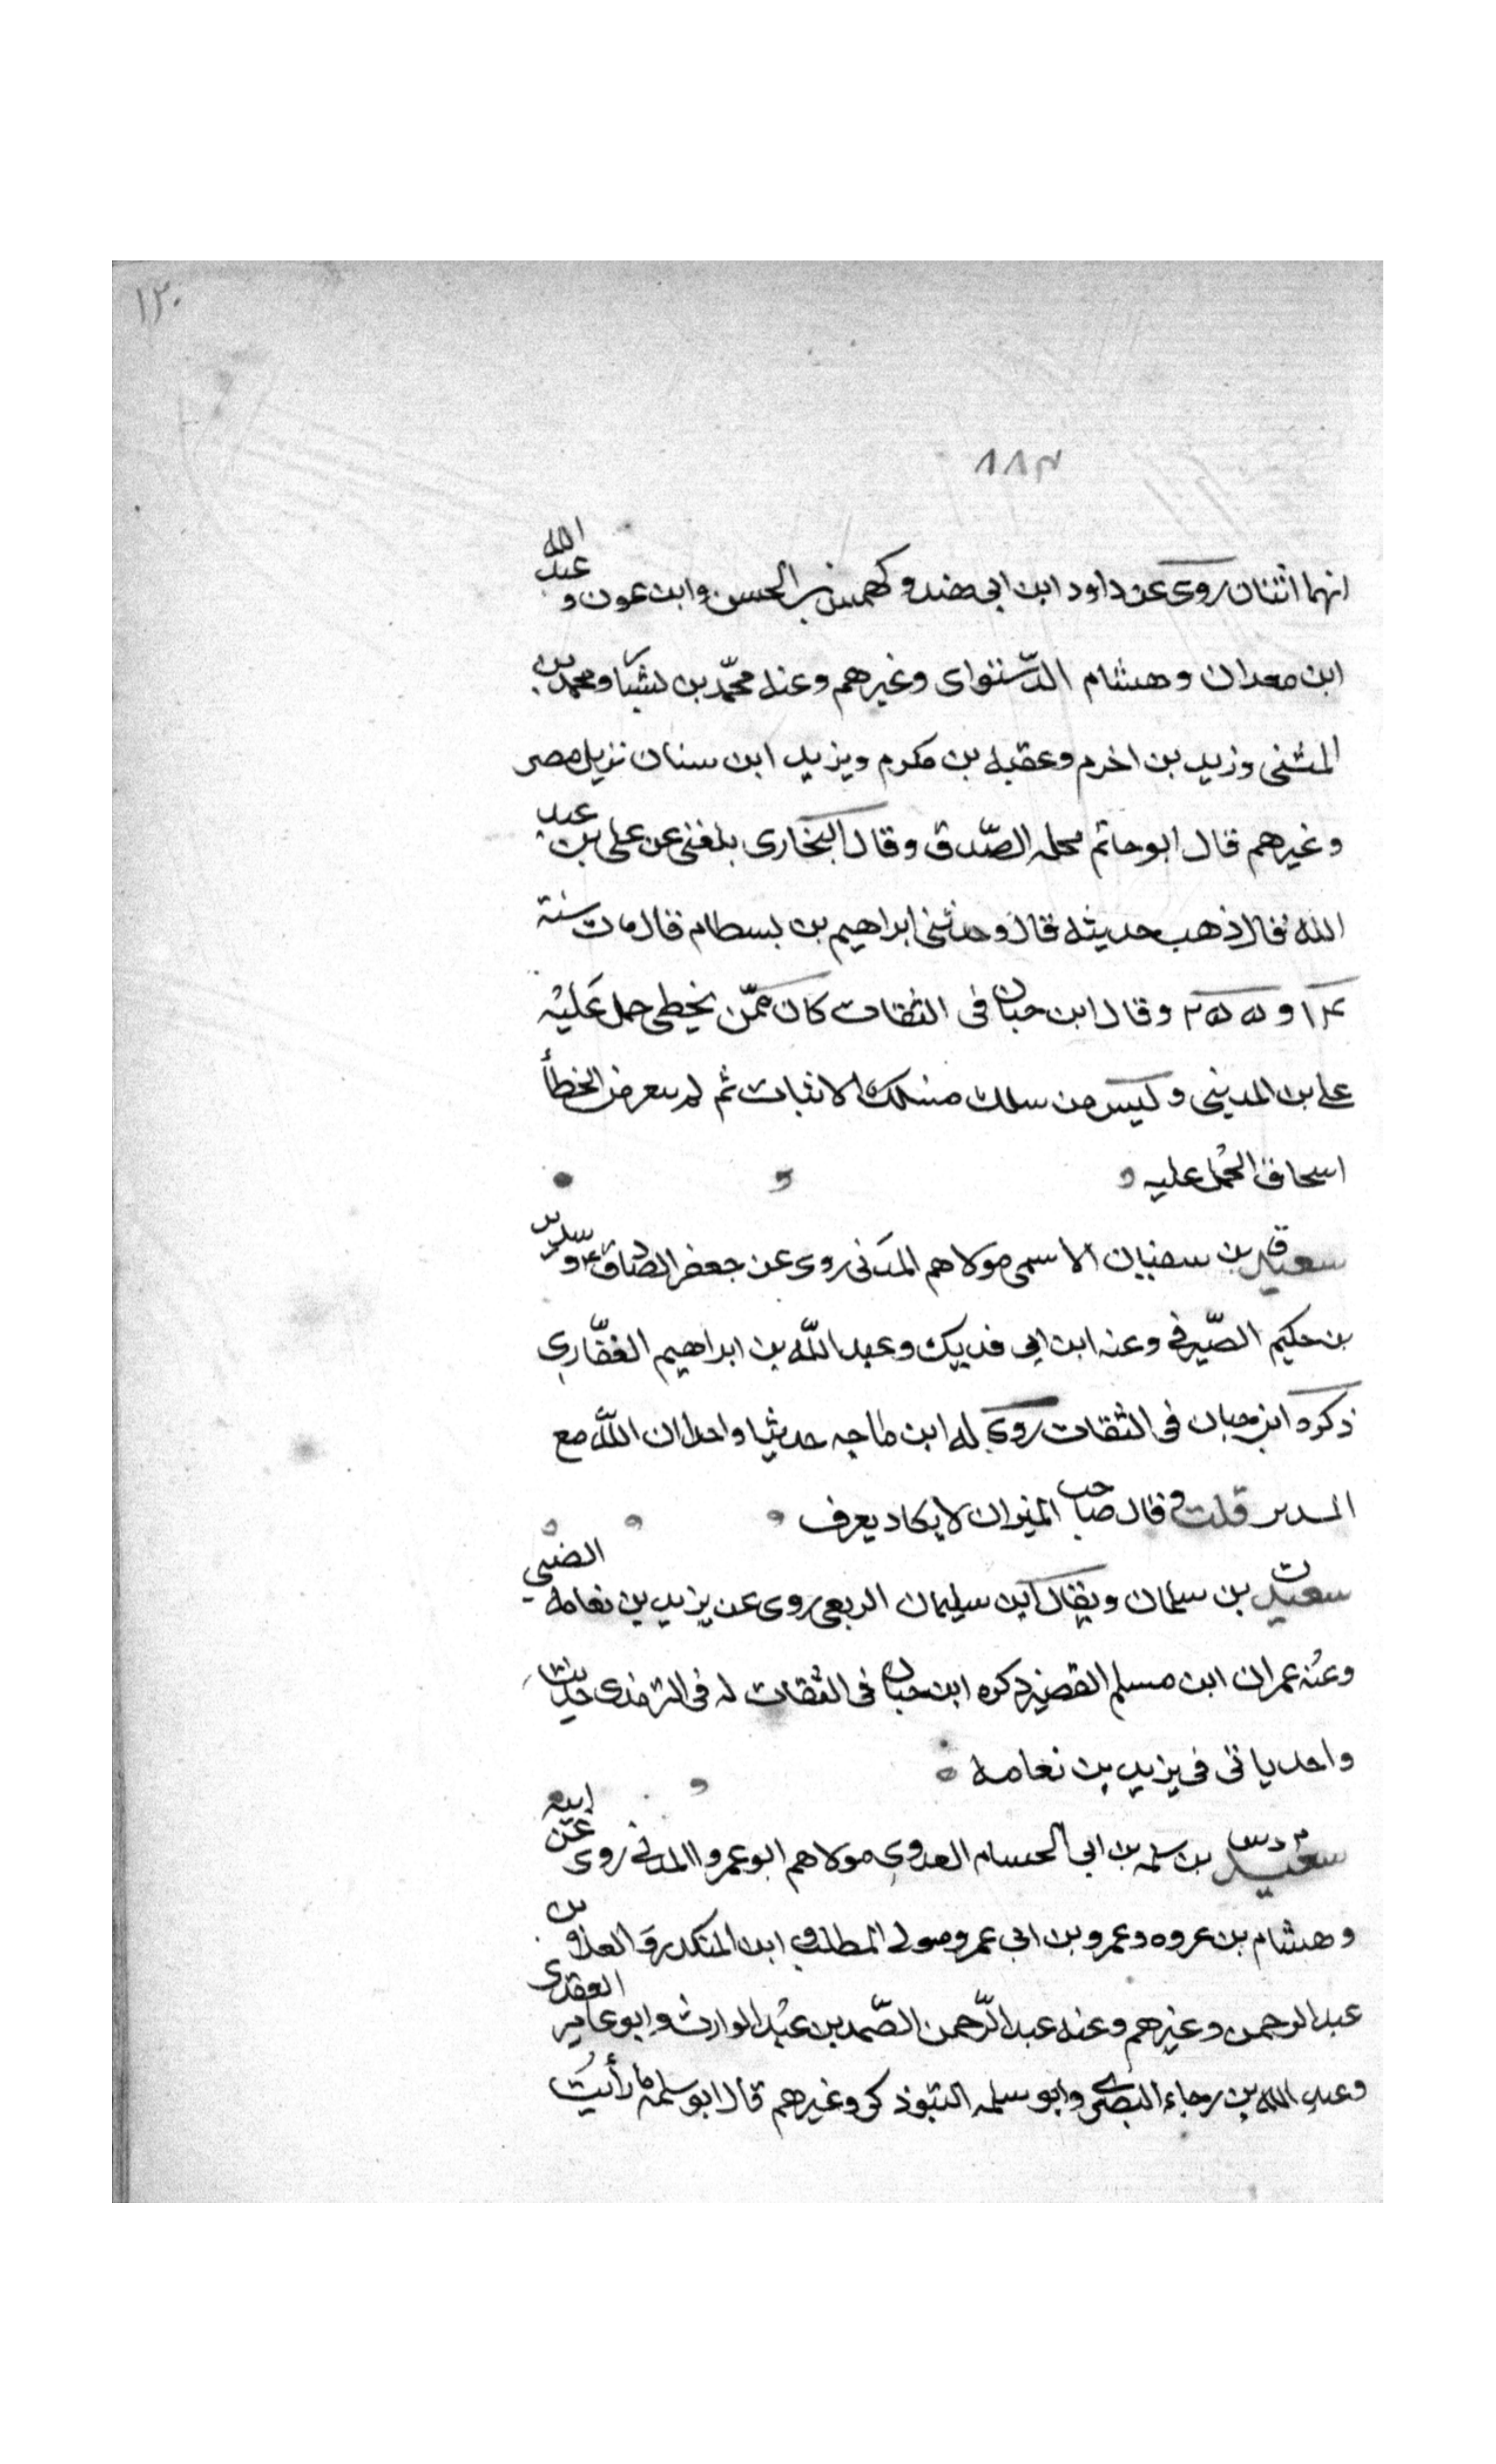 ١٢٠
٨٨٣
انهما اثنان روى عن داود ابن ابي هند وكهمس بن الحسن وابن عون و عبد الله
ابن معدان وهشام الدّستوای وغيرهم وعنه محمّد بن بشار ومحمد بن
المثنى وزيد بن اخرم وعقبه بن مكرم ويزيد ابن سنان نزيل مصر
وغيرهم قال ابو حاتم محله الصّدق وقال البخارى بلغنى عن على بن عبد
الله فقال ذهب حديثه قال وحدثنى ابراهيم بن بسطام قال مات سنة
وقال ابن حبان فى الثقات كان ممّن يخطى حمل عَليْه
على بن المدينى وليس من سلك مسلك الاثبات ثم لم يتعرض الخطأ
اسحاق الحمل عليه
سعيد ق بن سفيان الاسمى مولاهم المدَنى روى عن جعفر الصادق و سدير
بن حكيم الصّيرفى وعنه ابن ابى فديك وعبد اللّه بن ابراهيم الغفّاري
ذكره ابن حبان فى الثقات روى له ابن ماجه حديثا واحدا ان اللّه مع
المدىر قلت و قال صاحب الميزان لا يكاد يعرف
سعيد ت بن سلمان ويقال ابن سليمان الربعى روى عن يزيد بن نعامه الضبي
وعنه عمران ابن مسلم القصير ذكره ابن حبان فى الثقات له فى الترمذى حديث
واحد ياتى فى يزيد بن نعامه
سعيد م د س بن سلمه بن ابى الحسام العدوي مولاهم ابو عمرو المدنى روى عن ابيه
وهشام بن عروه وعمرو بن ابى عمرو مولى المطلب و ابن المنكدر و العلاء بن
عبد الرحمن وغيرهم وعنه عبد الرّحمن الصّمد بن عبْد الوارث وابو عامر العقدى
وعبد الله بن رجاء البصرى وابو سلمه التبوذكى وغيرهم قال ابو سلمه ما رأيتُ